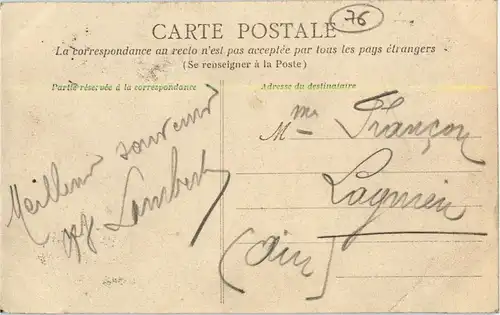 CARTE POSTALE
76
La correspondance au recto n'est pas acceptée par tous les pays étrangers
(Se renseigner à la Poste)
Partie réservée à la correspondance
Meilleur souvenir
Lambert
Adresse du destinataire
Mme Françon
Lagnieu
(Ain)